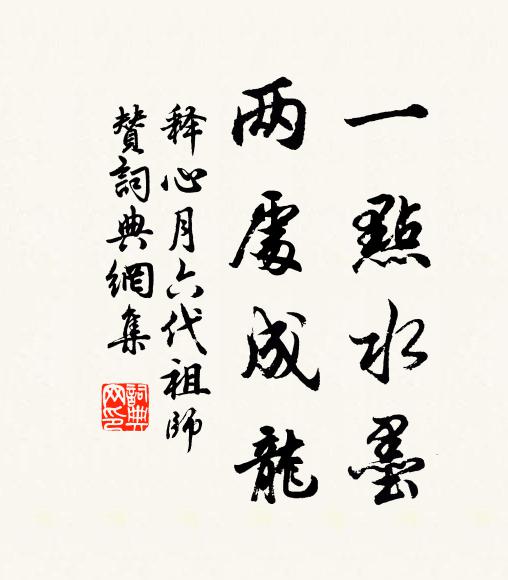 一點水墨
两處成龍
释心月六代祖師
贊詞典網集
詞典網印